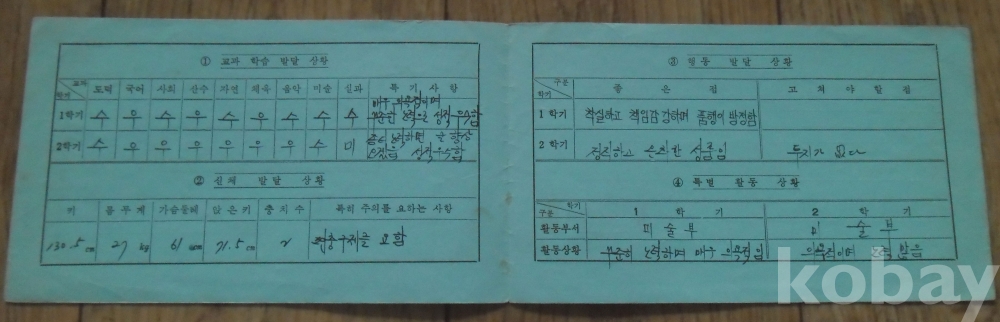 ① 교과 학습 발달 상황
교과 도덕 국어 사회 산수 자연 체육 음악 미술 실과 특기사항
학기
매우 의욕적이며
1학기 수 우 수 수 수 우 우 수 수 꾸준한 노력으로 성적 우수함
2학기 수 우 우 우 우 우 우 수 미 좀더 노력하면 큰 향상
있겠음 성적 우수함
② 신체 발달 상황
키 몸무게 가슴둘레 앉은키 충치수 특히 주의를 요하는 사항
130.5cm 27kg 61cm 71.5cm 2 구제를 요함
③ 행동 발달 상황
구분 좋은점 고쳐야할점
학기
1학기 착실하고 책임감 강하며 품행이 방정함
2학기 정직하고 온화한 성품임 특기가 없다
④ 특별 활동 상황
학기 1학기 2학기
구분
활동부서 미술부 미술부
활동상황 꾸준히 노력하며 매우 의욕적임 의욕적이며 많음
kobay